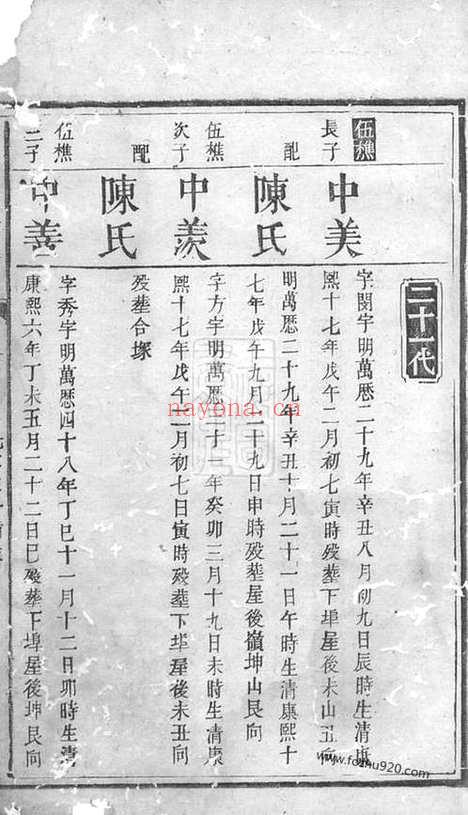 三十一代
伍樵
長子
中美
字閔宇明萬厯二十九年辛丑八月初九日辰時生清康
熙十七年戊午二月初七寅時殁塟下埠屋後未山丑向
配
陳氏
明萬厯二十九年辛丑十月二十一日午時生清康熙十
七年戊午九月二十九日申時殁塟屋後嶺坤山艮向
伍樵
次子
中羨
字方宇明萬厯三十一年癸卯三月十九日未時生清康
熙十七年戊午二月初七日寅時殁塟下埠屋後未丑向
配
陳氏
殁塟合塚
伍樵
三子
中善
字秀宇明萬厯四十八年丁巳十一月十二日卯時生清
康熙六年丁未五月二十二日巳殁葬下埠屋後坤艮向
nayona.cn
www.fozhu920.com